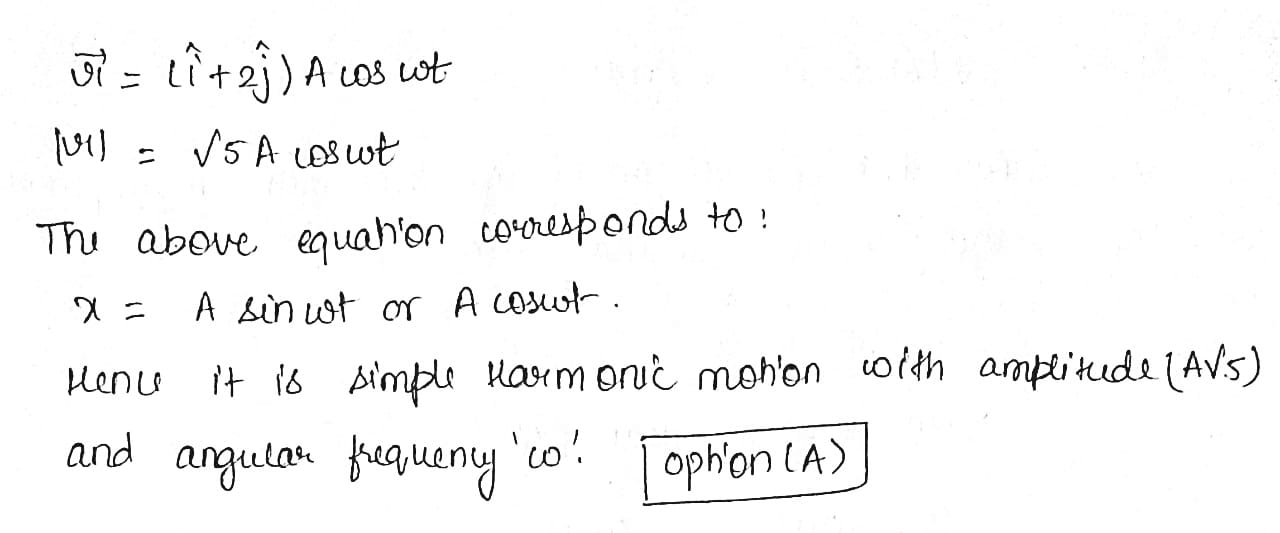 r⃗ = (î + 2ĵ) A cos ωt
|r| = √5 A cos ωt
The above equation corresponds to :
x = A sin ωt or A cos ωt .
Hence it is simple Harmonic motion with amplitude (A√5)
and angular frequency 'ω'. option (A)